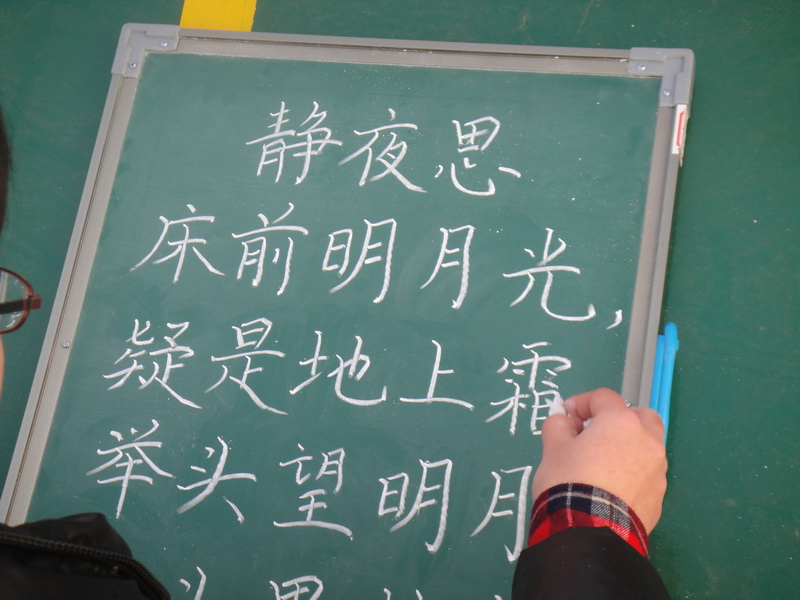 静夜思
床前明月光，
疑是地上霜
举头望明月